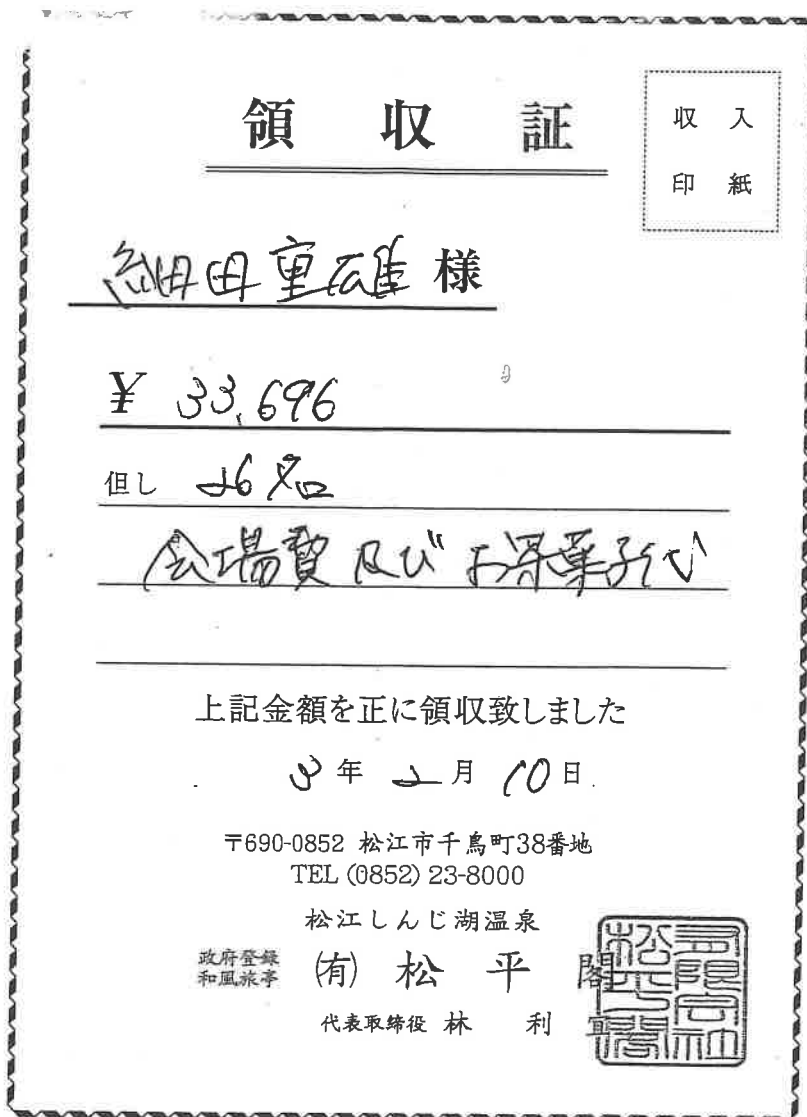 領収証
収入
印紙
細田重雄様
¥ 33,696
但し 26名
会場費及びお茶菓子代
上記金額を正に領収致しました
3年2月10日
〒690-0852 松江市千鳥町38番地
TEL (0852) 23-8000
松江しんじ湖温泉
政府登録
和風旅亭
(有) 松平閣
代表取締役 林 利
有限会社
松平閣